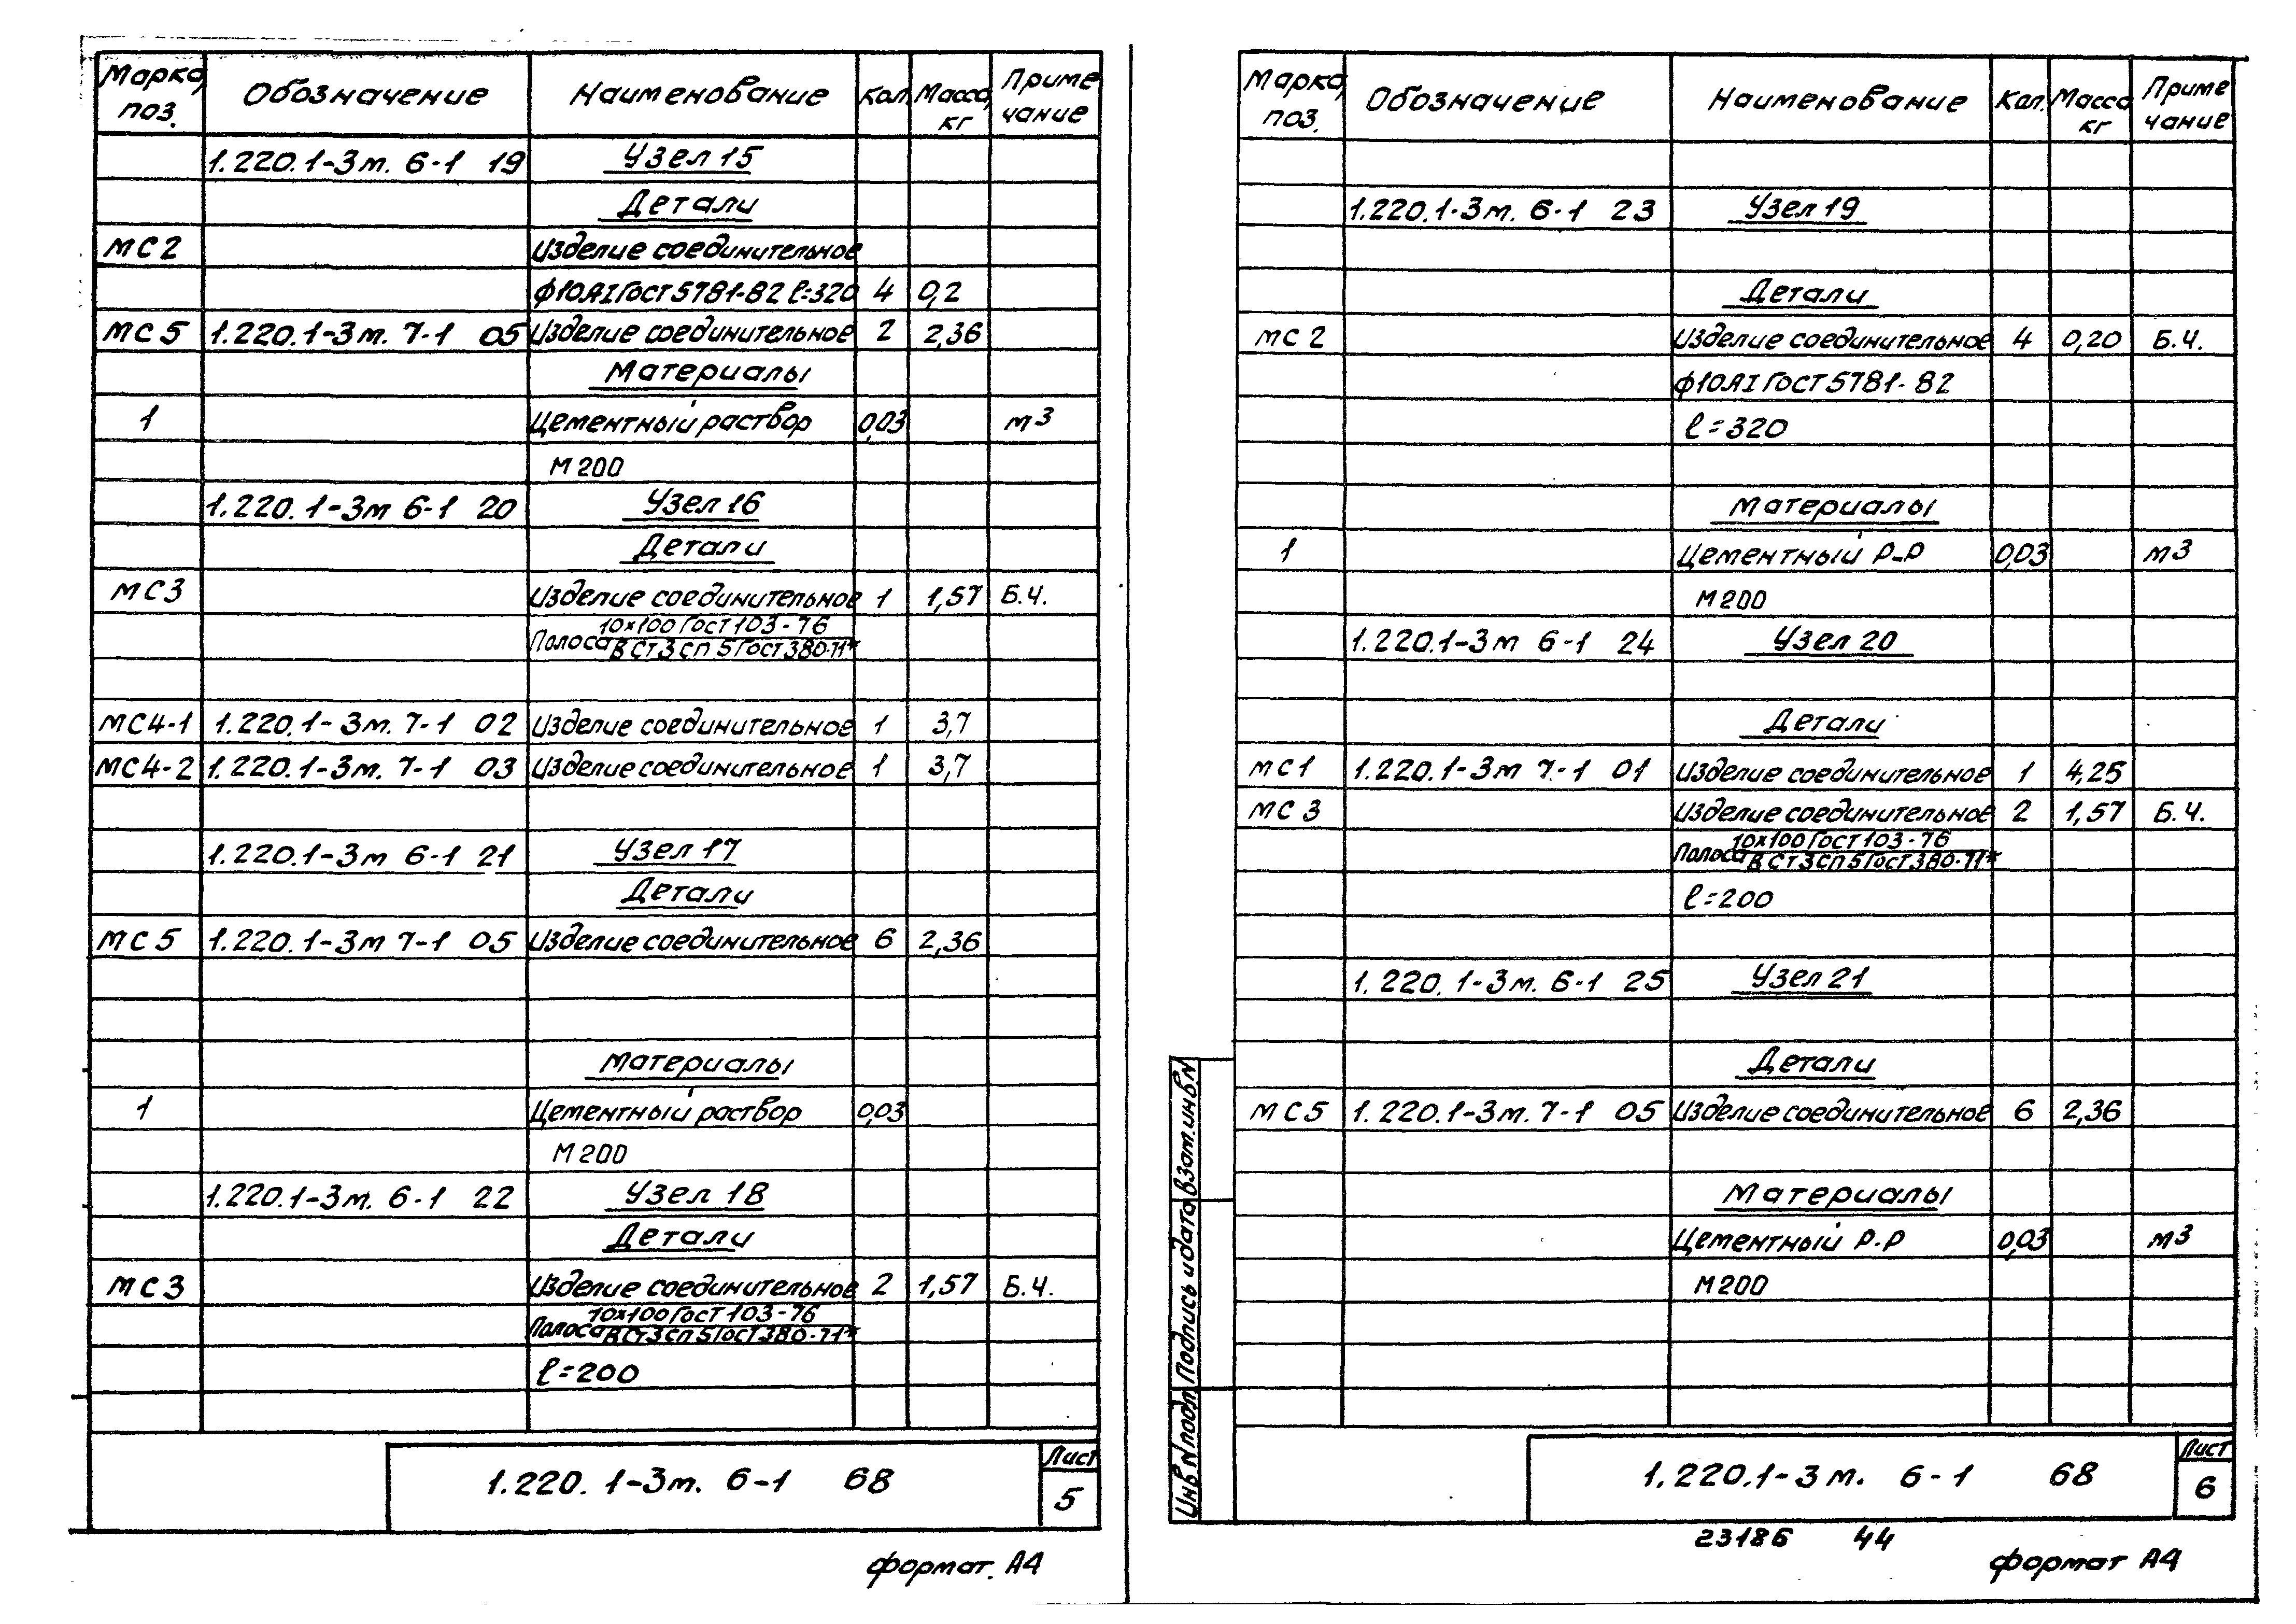 Марка, поз. Обозначение Наименование Кол. Масса, кг Приме чание
1.220.1-3м. 6-1 19 Узел 15
Детали
МС2 Изделие соединительное
ф10АI ГОСТ 5781-82 ℓ=320 4 0,2
МС5 1.220.1-3м. 7-1 05 Изделие соединительное 2 2,36
Материалы
1 Цементный раствор 0,03 м3
М200
1.220.1-3м 6-1 20 Узел 16
Детали
МС3 Изделие соединительное 1 1,57 Б.ч.
10×100 ГОСТ 103-76
Полоса В Ст3сп5 ГОСТ 380-71*
МС4-1 1.220.1-3м. 7-1 02 Изделие соединительное 1 3,7
МС4-2 1.220.1-3м. 7-1 03 Изделие соединительное 1 3,7
1.220.1-3м 6-1 21 Узел 17
Детали
МС5 1.220.1-3м 7-1 05 Изделие соединительное 6 2,36
Материалы
1 Цементный раствор 0,03
М200
1.220.1-3м. 6-1 22 Узел 18
Детали
МС3 Изделие соединительное 2 1,57 Б.ч.
10×100 ГОСТ 103-76
Полоса В Ст3сп5 ГОСТ 380-71*
ℓ=200
1.220.1-3м. 6-1 68 Лист 5
формат. А4
Марка, поз. Обозначение Наименование Кол. Масса, кг Приме чание
1.220.1-3м. 6-1 23 Узел 19
Детали
МС2 Изделие соединительное 4 0,20 Б.ч.
ф10АI ГОСТ 5781-82
ℓ=320
Материалы
1 Цементный р-р 0,03 м3
М200
1.220.1-3м 6-1 24 Узел 20
Детали
МС1 1.220.1-3м 7-1 01 Изделие соединительное 1 4,25
МС3 Изделие соединительное 2 1,57 Б.ч.
10×100 ГОСТ 103-76
Полоса В Ст3сп5 ГОСТ 380-71*
ℓ=200
1.220.1-3м. 6-1 25 Узел 21
Детали
МС5 1.220.1-3м. 7-1 05 Изделие соединительное 6 2,36
Материалы
Цементный р.р 0,03 м3
М200
Инв N подл Подпись и дата Взам.инв N
1.220.1-3м. 6-1 68 Лист 6
23186 44
формат А4